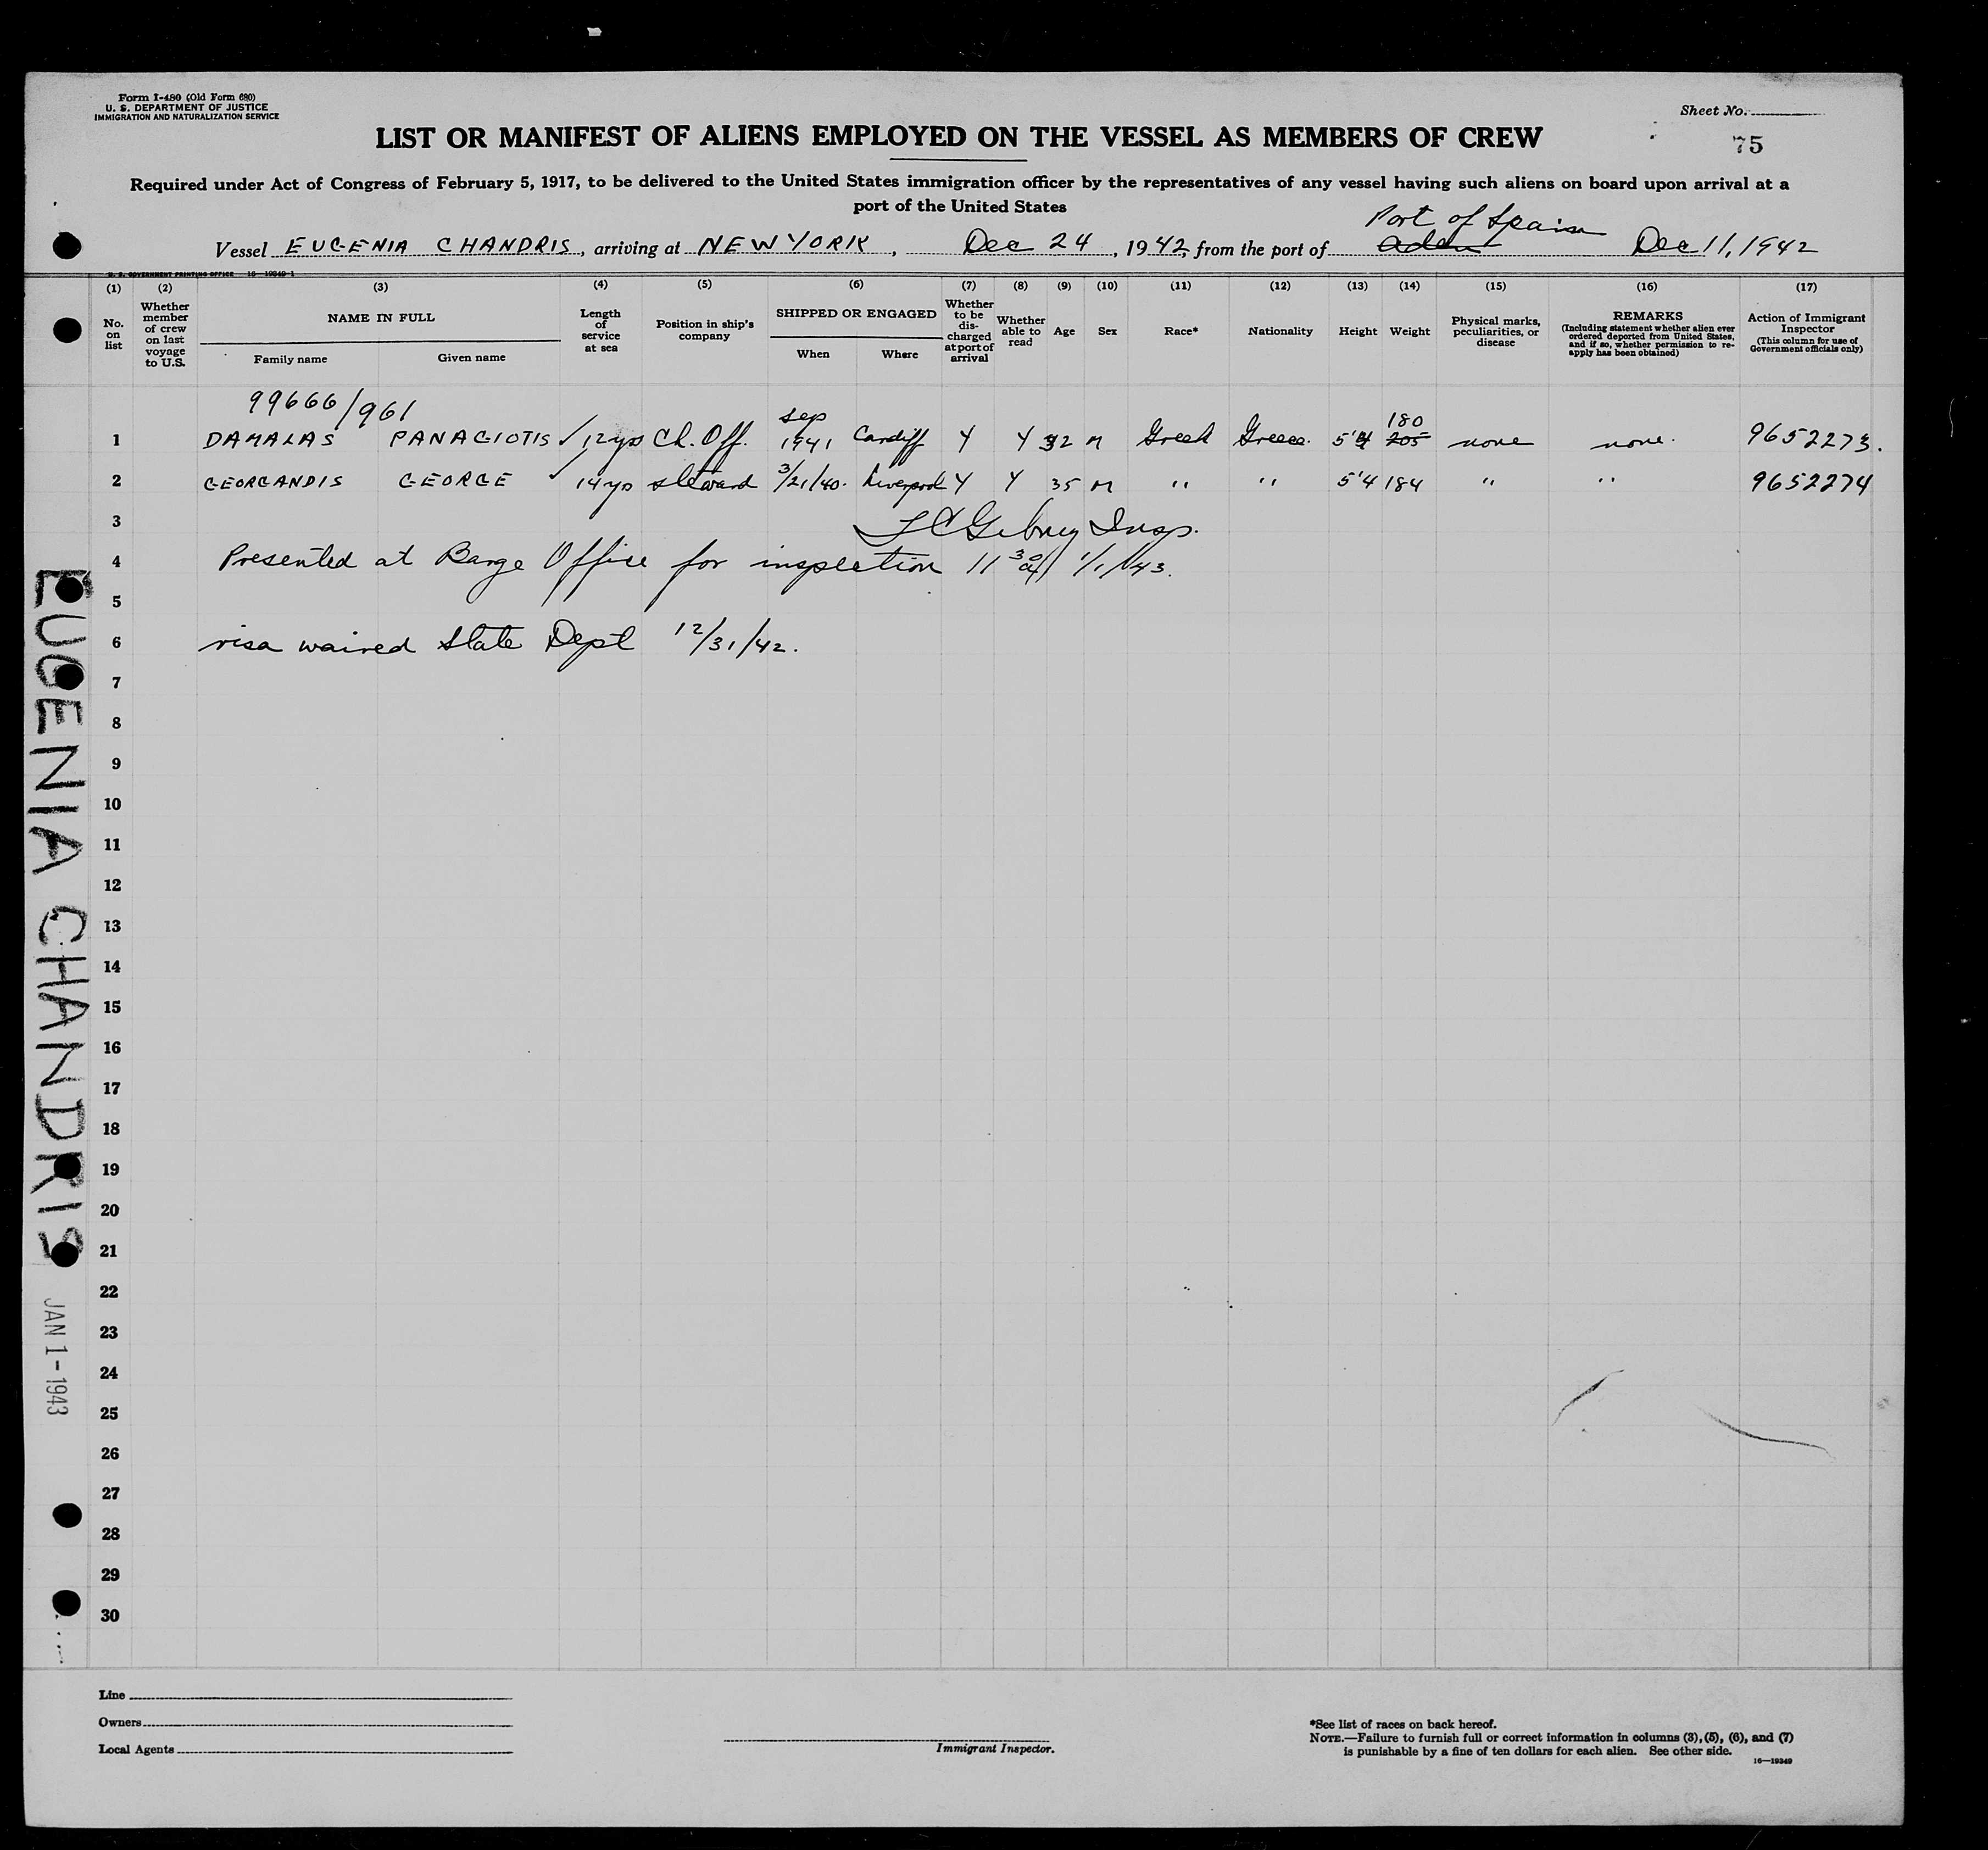 Form I-480 (Old Form 680)
U. S. DEPARTMENT OF JUSTICE
IMMIGRATION AND NATURALIZATION SERVICE
Sheet No.
75
LIST OR MANIFEST OF ALIENS EMPLOYED ON THE VESSEL AS MEMBERS OF CREW
Required under Act of Congress of February 5, 1917, to be delivered to the United States immigration officer by the representatives of any vessel having such aliens on board upon arrival at a
port of the United States
Port of Spain
Vessel EUGENIA CHANDRIS, arriving at NEW YORK, Dec 24, 1942, from the port of Aden Dec 11, 1942
U. S. GOVERNMENT PRINTING OFFICE 16-19349-1
(1) (2) (3) (4) (5) (6) (7) (8) (9) (10) (11) (12) (13) (14) (15) (16) (17)
No. on list
Whether member of crew on last voyage to U.S.
NAME IN FULL
Family name Given name
Length of service at sea
Position in ship's company
SHIPPED OR ENGAGED
When Where
Whether to be discharged at port of arrival
Whether able to read
Age
Sex
Race*
Nationality
Height
Weight
Physical marks, peculiarities, or disease
REMARKS
(Including statement whether alien ever ordered deported from United States, and if so, whether permission to reapply has been obtained)
Action of Immigrant Inspector
(This column for use of Government officials only)
99666/961
Sep 180
1 DAMALAS PANAGIOTIS ✓ 12 yrs Ch. Off. 1941 Cardiff Y Y 32 M Greek Greece. 5'4 205 none none. 9652273.
2 GEORGANDIS GEORGE ✓ 14 yrs steward 3/21/40. Liverpool Y Y 35 M " " 5'4 184 " " 9652274
3 Insp.
4 Presented at Barge Office for inspection 11 30 a/ 1/1/43.
5
6 visa waived State Dept 12/31/42.
7
8
9
10
11
12
13
14
15
16
17
18
19
20
21
22
23
24
25
26
27
28
29
30
EUGENIA CHANDRIS
JAN 1-1943
Line
Owners
Local Agents
Immigrant Inspector.
*See list of races on back hereof.
NOTE.—Failure to furnish full or correct information in columns (3), (5), (6), and (7)
is punishable by a fine of ten dollars for each alien. See other side.
16—19349